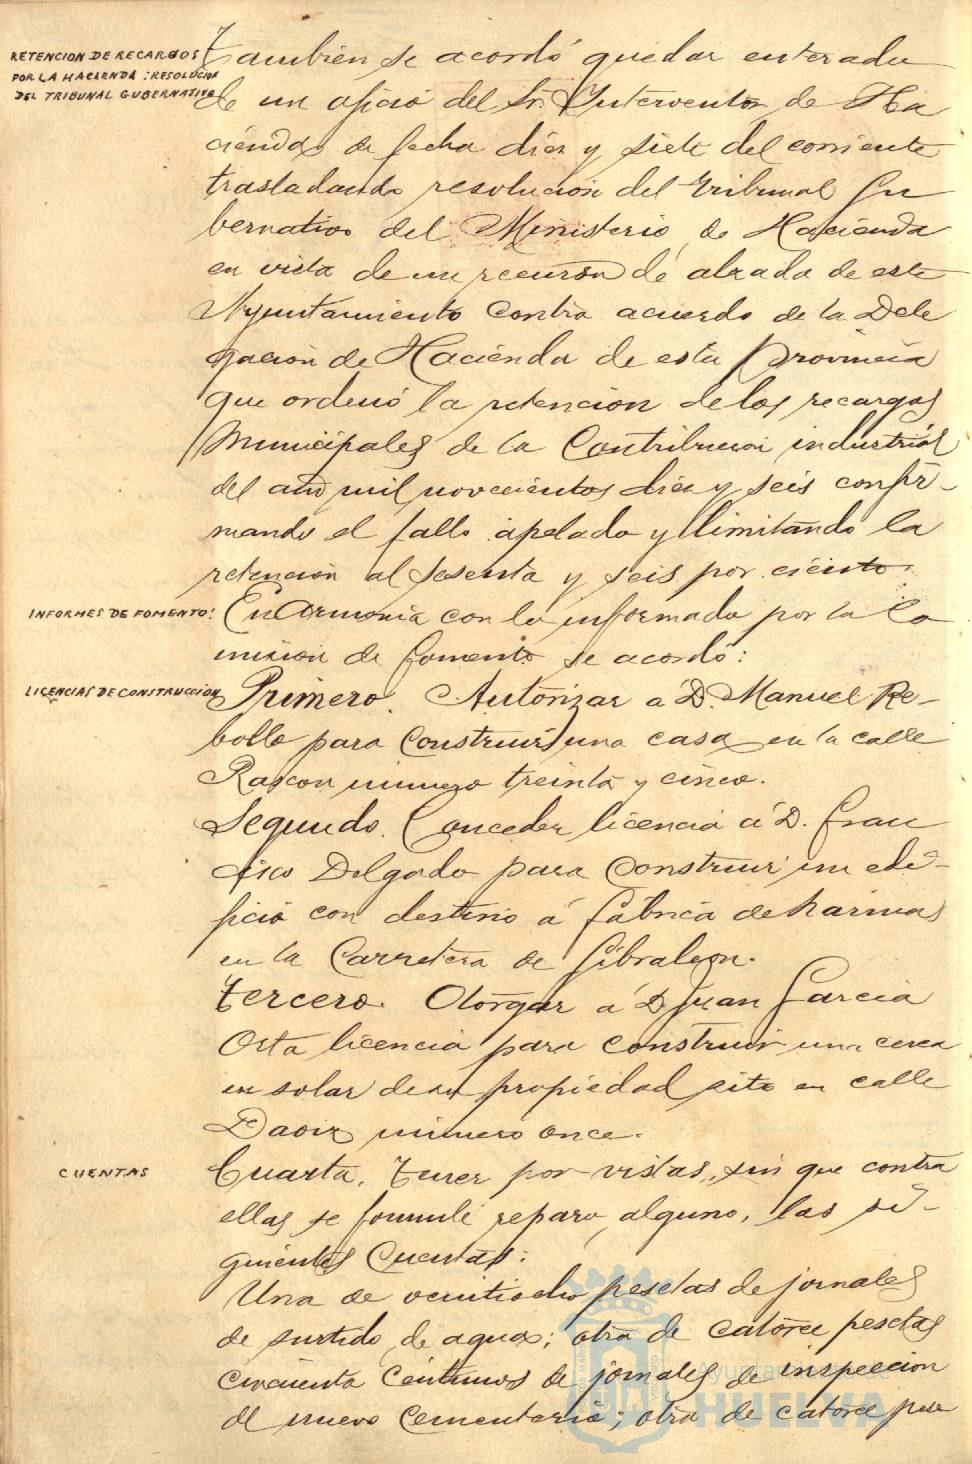 RETENCION DE RECARGOS
POR LA HACIENDA : RESOLUCION
DEL TRIBUNAL GUBERNATIVO
Tambien se acordó quedar enterado
de un oficio del Sr. Interventor de Ha
cienda, de fecha diez y siete del corriente
trasladando resolución del Tribunal Gu
bernativo del Ministerio de Hacienda
en vista de un recurso de alzada de este
Ayuntamiento contra acuerdo de la Dele
gación de Hacienda de esta Provincia
que ordenó la retencion de los recargos
Municipales de la Contribucion industrial
del año mil novecientos diez y seis confir-
mando el fallo apelado y limitando la
retención al sesenta y seis por ciento.
INFORMES DE FOMENTO:
En armonia con lo informado por la Co
mision de fomento se acordó:
LICENCIAS DE CONSTRUCCION
Primero. Autorizar á D. Manuel Re-
bollo para construir una casa en la calle
Rascon número treinta y cinco.
Segundo. Conceder licencia á D. Fran
cisco Delgado para construir un edi-
ficio con destino á fábrica de harinas
en la Carretera de Gibraleon.
Tercero. Otorgar á D. Juan Garcia
Orta licencia para construir una cerca
en solar de su propiedad sito en calle
Daoiz número once.
CUENTAS
Cuarta. Tener por vistas, sin que contra
ellas se formule reparo alguno, las si-
guientes Cuentas:
Una de veintiocho pesetas de jornales
de surtido de aguas; otra de catorce pesetas
cincuenta centimos de jornales de inspeccion
del nuevo cementerio; otra de catorce pese
Ayuntamiento de
HUELVA